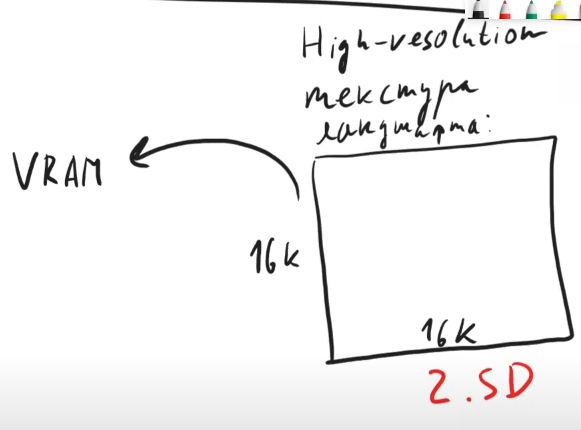 High-resolution
текстура
ландшафта:
VRAM
16k
16k
2.5D